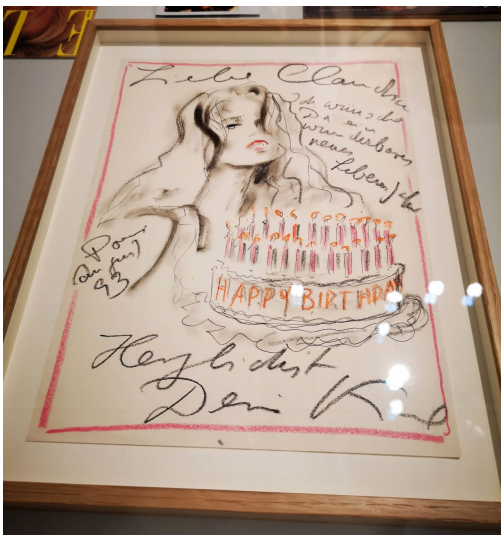 Liebe Claudia
Ich wünsche
Dir ein
wunderbares
neues
Lebensjahr
Paris
August
93
HAPPY BIRTHDAY
Herzlichst
Dein Karl